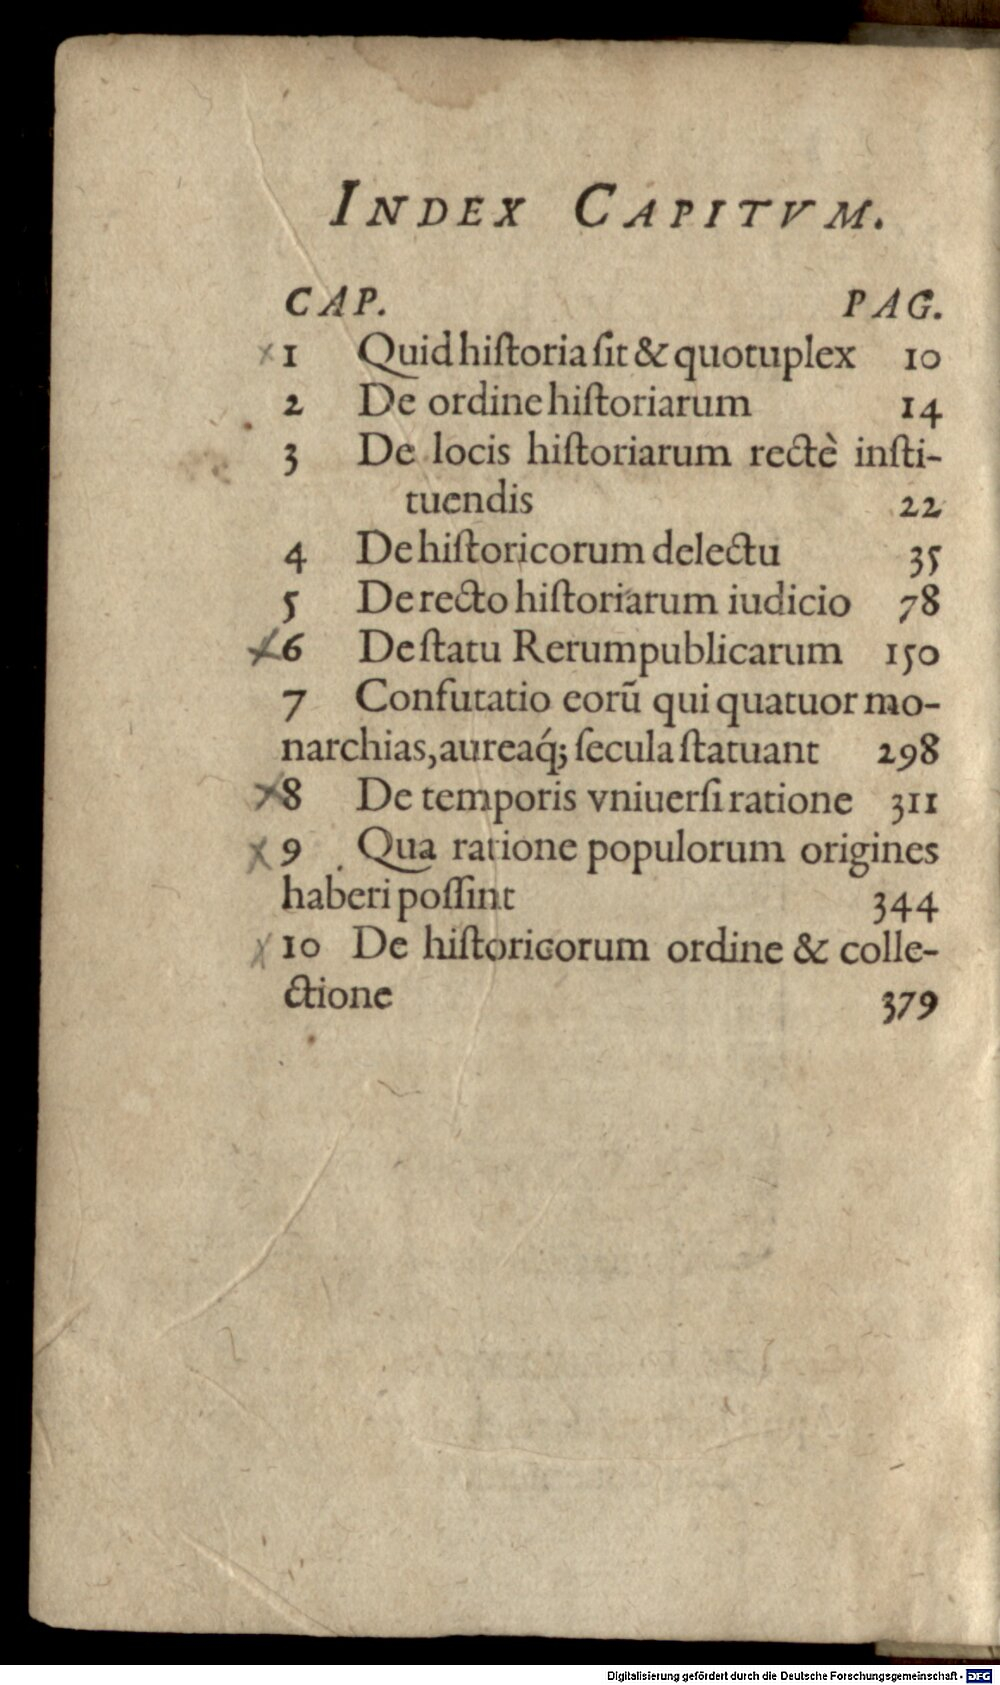 INDEX CAPITVM.
CAP. PAG.
1 Quid hiſtoria ſit & quotuplex 10
2 De ordine hiſtoriarum 14
3 De locis hiſtoriarum rectè inſti-
tuendis 22
4 De hiſtoricorum delectu 35
5 De recto hiſtoriarum iudicio 78
6 De ſtatu Rerumpublicarum 150
7 Confutatio eorū qui quatuor mo-
narchias, aureaq́; ſecula ſtatuant 298
8 De temporis vniuerſi ratione 311
9 Qua ratione populorum origines
haberi poſſint 344
10 De hiſtoricorum ordine & colle-
ctione 379
Digitalisierung gefördert durch die Deutsche Forschungsgemeinschaft - DFG